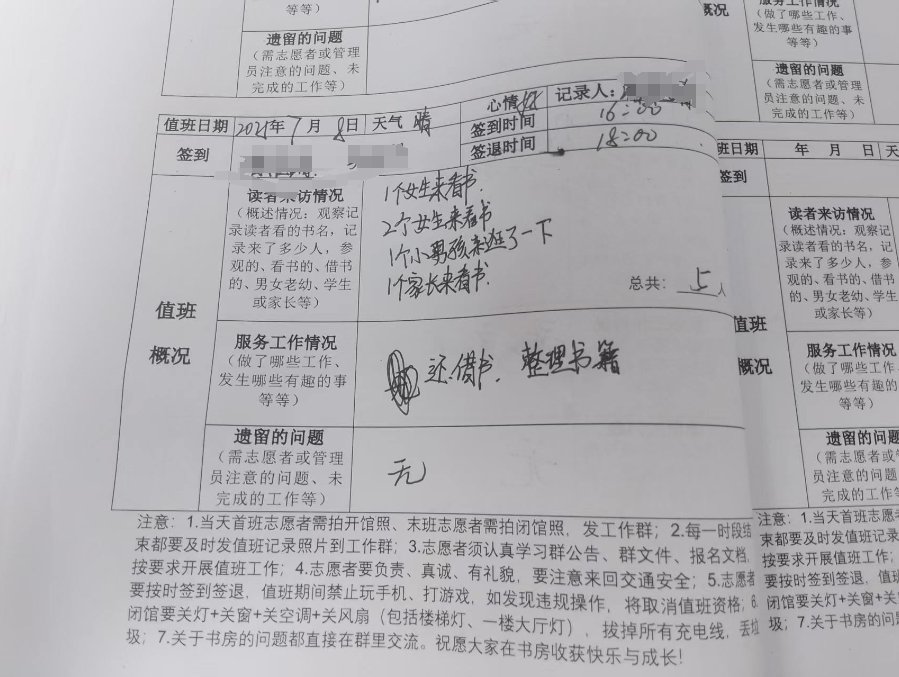 等等）
遗留的问题
（需志愿者或管理
员注意的问题、未
完成的工作等）
值班日期 2025年 7 月 8日 天气 晴 心情 好 记录人：
签到 签到时间 16:00
签退时间 18:00
值班
概况
读者来访情况
（概述情况：观察记
录读者看的书名，记
录来了多少人，参
观的、看书的、借书
的、男女老幼、学生
或家长等）
1个女生来看书.
2个女生来看书
1个小男孩来逛了一下
1个家长来看书.
总共： 5 人
服务工作情况
（做了哪些工作、
发生哪些有趣的事
等等）
还.借书. 整理书籍
遗留的问题
（需志愿者或管理
员注意的问题、未
完成的工作等）
无
注意：1.当天首班志愿者需拍开馆照、末班志愿者需拍闭馆照，发工作群；2.每一时段结
束都要及时发值班记录照片到工作群；3.志愿者须认真学习群公告、群文件、报名文档，
按要求开展值班工作；4.志愿者要负责、真诚、有礼貌，要注意来回交通安全；5.志愿者
要按时签到签退，值班期间禁止玩手机、打游戏，如发现违规操作，将取消值班资格；6.
闭馆要关灯+关窗+关空调+关风扇（包括楼梯灯、一楼大厅灯），拔掉所有充电线，丢垃
圾；7.关于书房的问题都直接在群里交流。祝愿大家在书房收获快乐与成长！
概况
服务工作情况
（做了哪些工作、
发生哪些有趣的事
等等）
遗留的问题
（需志愿者或管理
员注意的问题、未
完成的工作等）
班日期 年 月 日 天
签到
值班
概况
读者来访情况
（概述情况：观察记
录读者看的书名，记
录来了多少人，参
观的、看书的、借书
的、男女老幼、学生
或家长等）
服务工作情况
（做了哪些工作、
发生哪些有趣的事
等等）
遗留的问题
（需志愿者或管理
员注意的问题、未
完成的工作等）
注意：1.当天首班志愿者
束都要及时发值班记录
按要求开展值班工作；
要按时签到签退，值班
闭馆要关灯+关窗+关
圾；7.关于书房的问